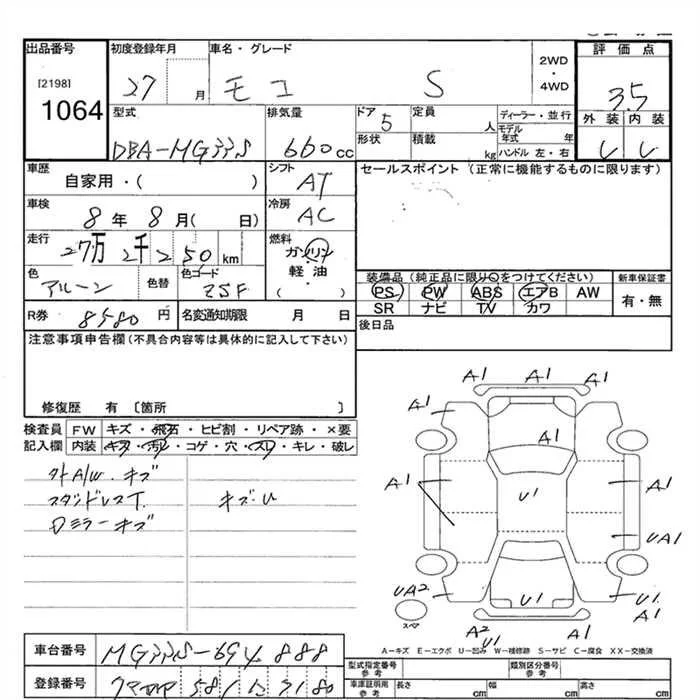 出品番号
[2198]
1064
初度登録年月
27 月
車名・グレード
モコ S
2WD
・
4WD
評価点
3.5
外装 内装
型式
DBA-MG33S
排気量
660cc
ドア 5
形状
定員 人
積載 kg
ディーラー・並行
モデル年式 年
ハンドル 左・右
車歴
自家用・( )
シフト
AT
車検
8年 8月( 日)
冷房
AC
走行
27万 2千 250 km
燃料
ガソリン
軽油
( )
色
色替
色コード
ZSF
R券 8580円
名変通知期限 月 日
セールスポイント (正常に機能するものに限ります)
装備品(純正品に限り〇をつけてください)
PS PW ABS エアB AW
SR ナビ TV カワ
新車保証書
有・無
後日品
注意事項申告欄(不具合内容等は具体的に記入して下さい)
修復歴 有 〔箇所 〕
検査員記入欄
FW キズ・飛石・ヒビ割・リペア跡・×要
内装 キズ・汚れ・コゲ・穴・スレ・キレ・破レ
外A/W.キズ
スタッドレスT. キズ.U
Dミラーキズ
A1 A1 A1
A1 A1
A1
A1 U1 A1
UA1
UA2 U1 U1
A1
スペア
A2
U1
A-キズ E-エクボ U-凹み W-補修跡 S-サビ C-腐食 XX-交換済
車台番号 MG33S-694888
登録番号
型式指定番号
参考
類別区分番号
参考
車庫証明用
参考
長さ cm 幅 cm 高さ cm